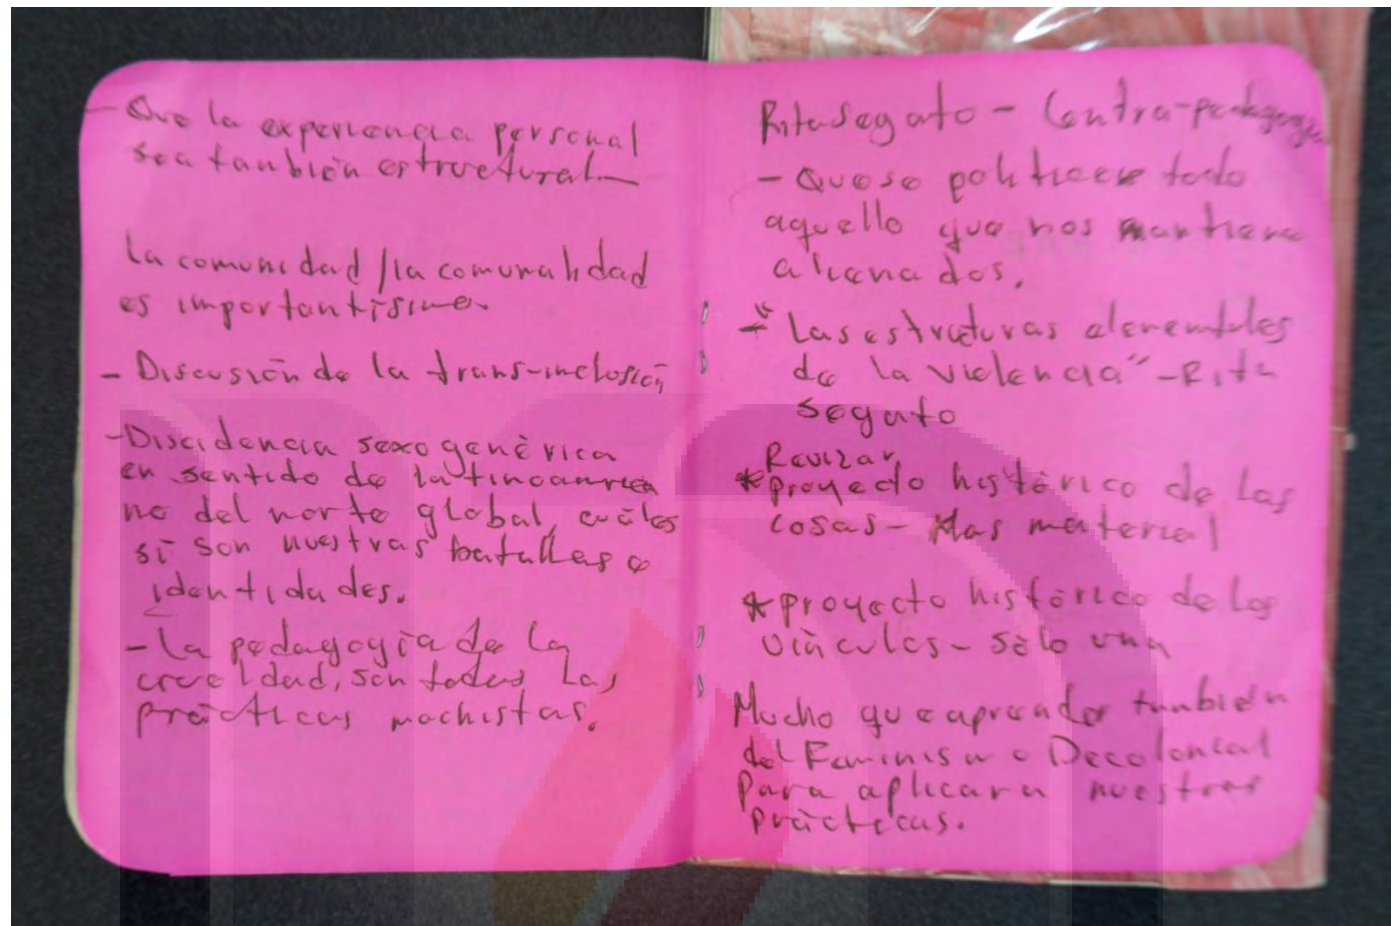 - Que la experiencia personal
sea también estructural.—
La comunidad / la comunalidad
es importantísimo.
- Discusión de la trans-inclusión
- Discidencia sexogenérica
en sentido de latinoamrica
no del norte global, cuáles
sí son nuestras batallas e
identidades.
- La pedagogía de la
crueldad, son todas las
prácticas machistas.
Rita Segato - Contra-pedagogías
- Que se politice todo
aquello que nos mantiene
alienados.
* "Las estructuras elementales
de la violencia" - Rita
Segato
Revizar
* proyecto histórico de las
cosas - Mas material
* proyecto histórico de los
vínculos - sólo una
Mucho que aprender también
del Feminismo Decolonial
para aplicar a nuestras
prácticas.